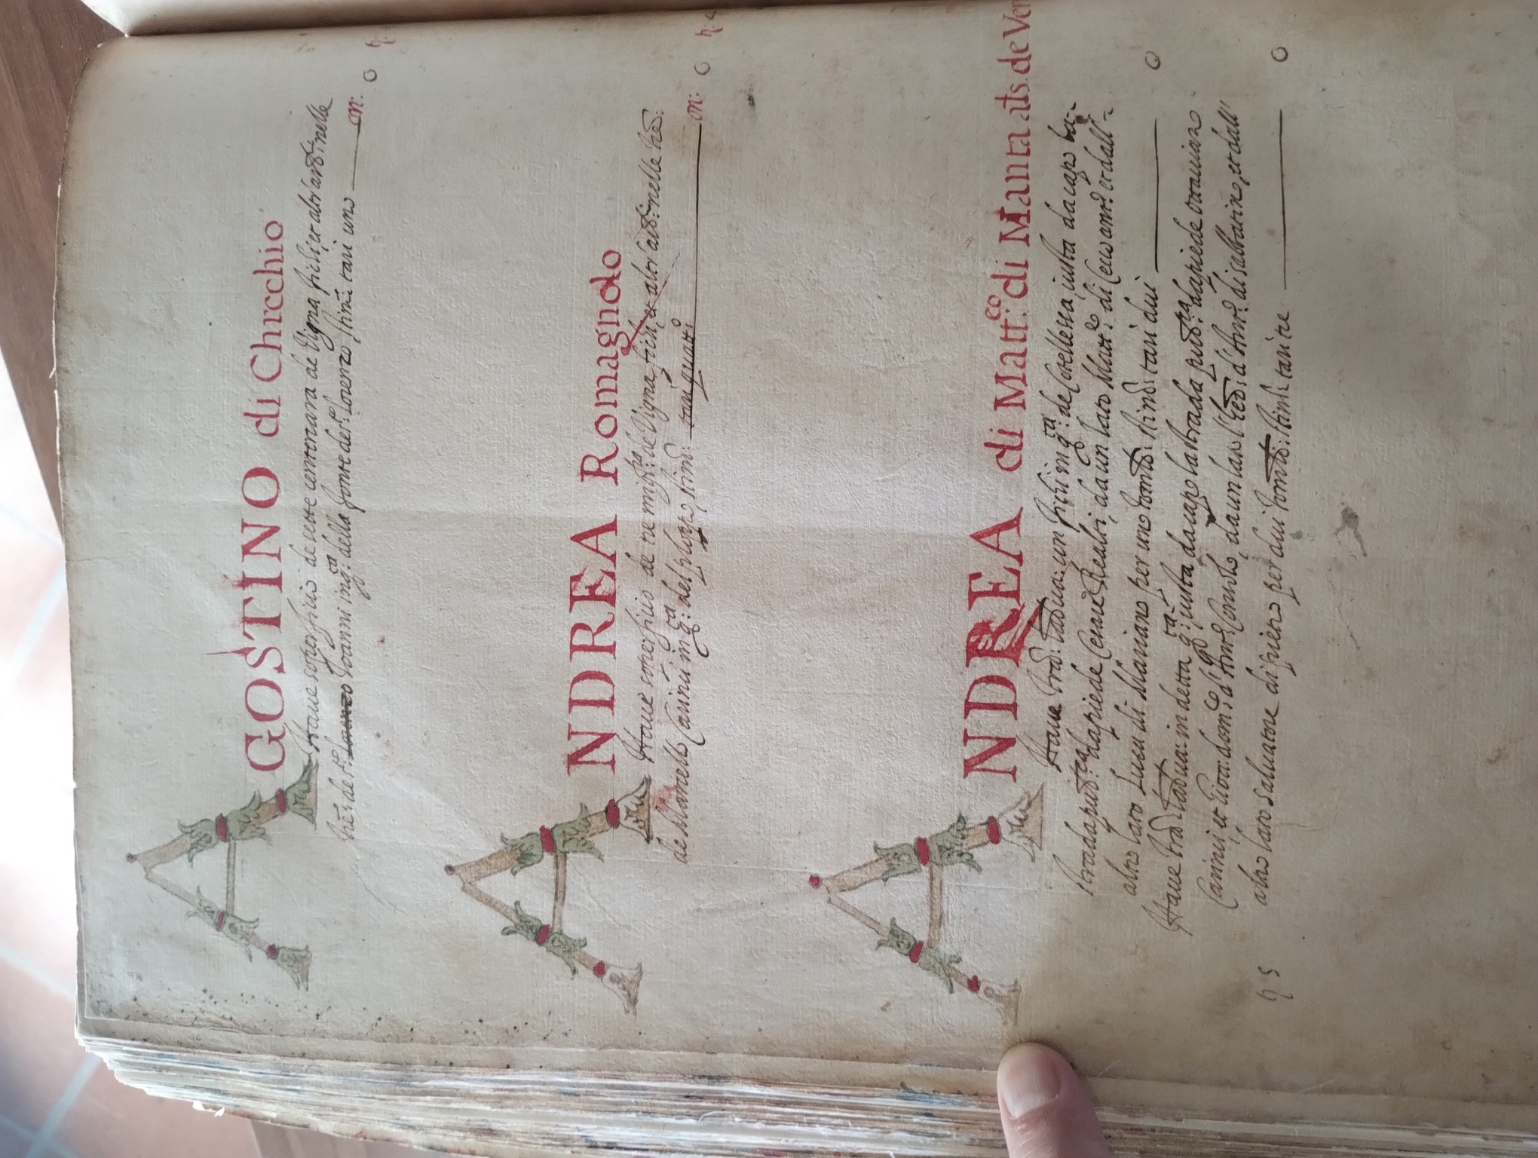 AGOSTINO di Chrecchio
Haue soperficio de sette centenara de Vigna fichi, et altr'arb:i nelle
he: de s.to Lorenzo Ioanni in q.ta della fonte de s.to Lorenzo stim: tari uno on: 0
ANDREA Romagnolo
Haue soperficio de tre migl:ra de Vigna fichi, et altr'arb:i nelle he:
de Marcello Carinci in q.ta del ploppo, stim: tari quattro on: 0
ANDREA di Matt:eo di Manta als. de Ve
Haue in q:ta de Cotellessa, iusta da capo la
strada pub:ca da piede Cesare Realti, da un lato Matt:o di Cecco ant:o et dall'
altro lato Luca di Mariano per uno tom:lo: stim: tari dui 0
Haue in detta q:ta, iusta da capo la strada pub:ca da piede Ottauiano
Carinci, et dom:co d'Ant:o Consolo, da un lato l'hed: d'Ant:o di sabbatino, et dall'
altro lato saluatore di pietro per dui tom:li: stim: tari tre 0